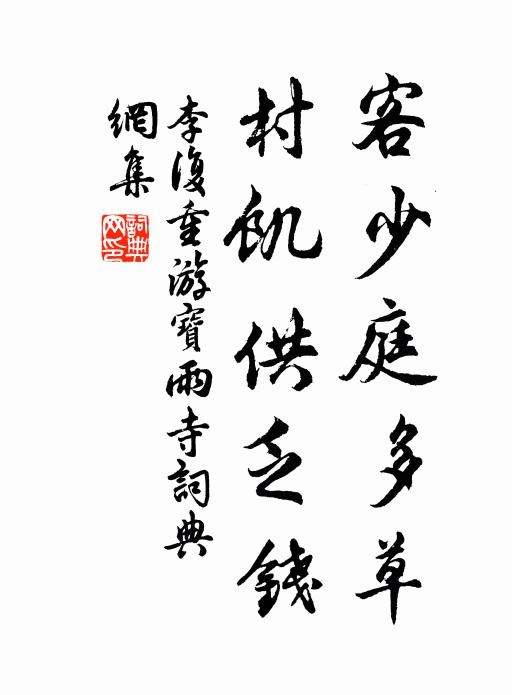 客少庭多草
村飢供乏錢
李復重游寶雨寺詞典
網集
詞典網印